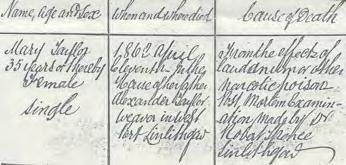 Name, Age and Sex
When and where died
Cause of Death
Mary Taylor
35 years of thereby
Female
single
1862 April
Eleventh In the
House of her father
Alexander Taylor
Weaver in West
Port Linlithgow
From the effects of
laudanum or other
Narcotic poison
Post Mortem Examin-
ation made by Dr
Robert Spence
Linlithgow